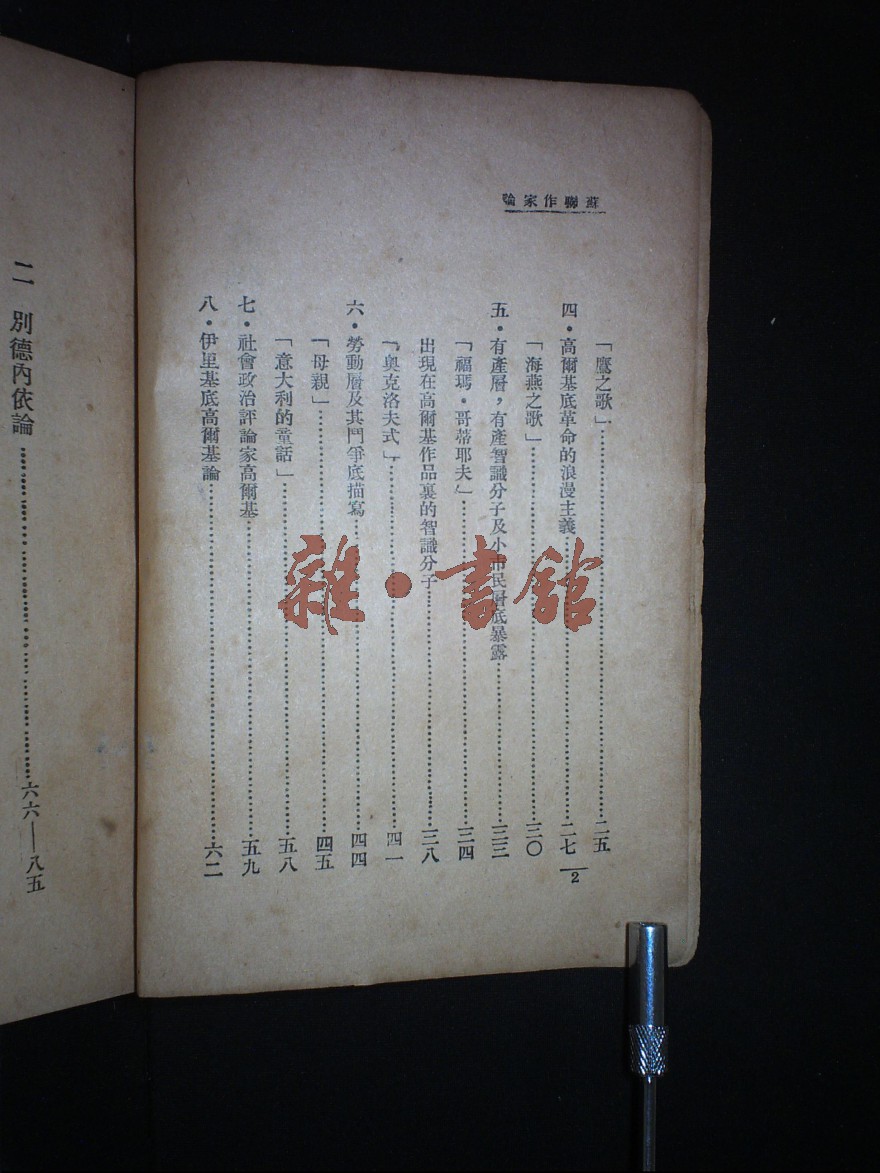 蘇聯作家論
「鷹之歌」…………二五
四・高爾基底革命的浪漫主義…………二七
「海燕之歌」…………三〇
五・有產層，有產智識分子及小市民層底暴露…………三三
「福瑪・哥蒂耶夫」…………三四
出現在高爾基作品裏的智識分子…………三八
「奧克洛夫式」…………四一
六・勞動層及其鬥爭底描寫…………四四
「母親」…………四五
「意大利的童話」…………五八
七・社會政治評論家高爾基…………五九
八・伊里基底高爾基論…………六二
2
二 別德內依論…………六六—八五
雜・書館